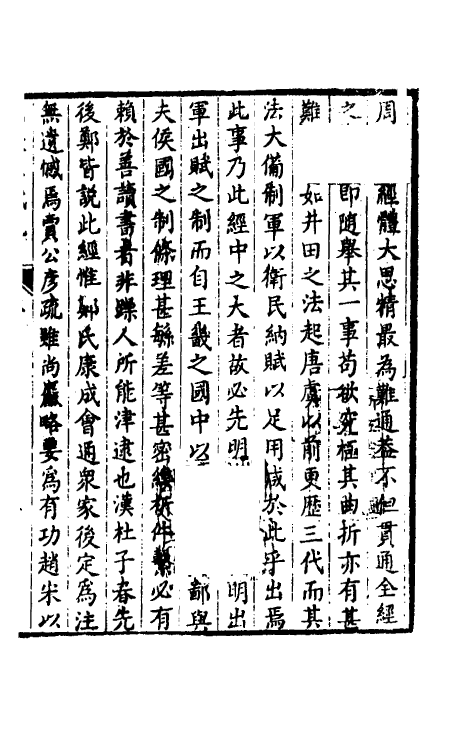 周 經體大思精最為難通葢不但貫通全經
之 即隨舉其一事苟欲究極其曲折亦有甚
難 如井田之法起唐虞以前更歷三代而其
法大備制軍以衛民納賦以足用咸於此乎出焉
此事乃此經中之大者故必先明 明出
軍出賦之制而自王畿之國中以 鄙與
夫侯國之制條理甚繇差等甚密 必有
賴於善讀書者非躁人所能津逮也漢杜子春先
後鄭皆説此經惟鄭氏康成會通衆家後定為注
無遺憾焉賈公彦疏雖尚麤略要為有功趙宋以